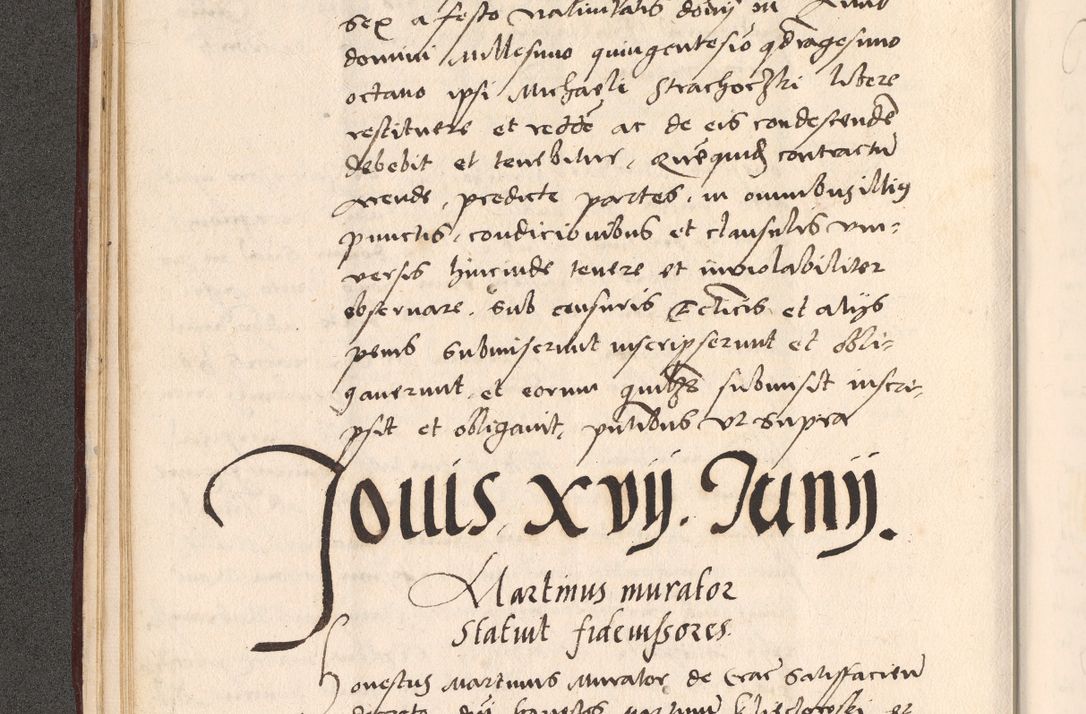 sex a festo nativitatis domini in Anno
domini Millesimo quingentesio qdragesimo
octavo ipsi Michaeli Strachoczki libere
restituere et redde ac de eis condescende
debebit et tenebitur, quequid contractu
arende, predicte partes, in omnibus illius
punctis, condicionibus et clausulis vni-
versis hincinde tenere et inviolabiliter
observare, sub censuris Ecclicis et alijs
penis submiserunt inscripserunt et obli-
gaverunt, et eorum quilibet submisit inscri-
psit et obligavit, pntibus vt supra
Jouis xvij. Junij.
Martinus murator
Statuit fideiussores.
Honestus Martinus Murator de Crac satisfaciend
decreto dni honestos